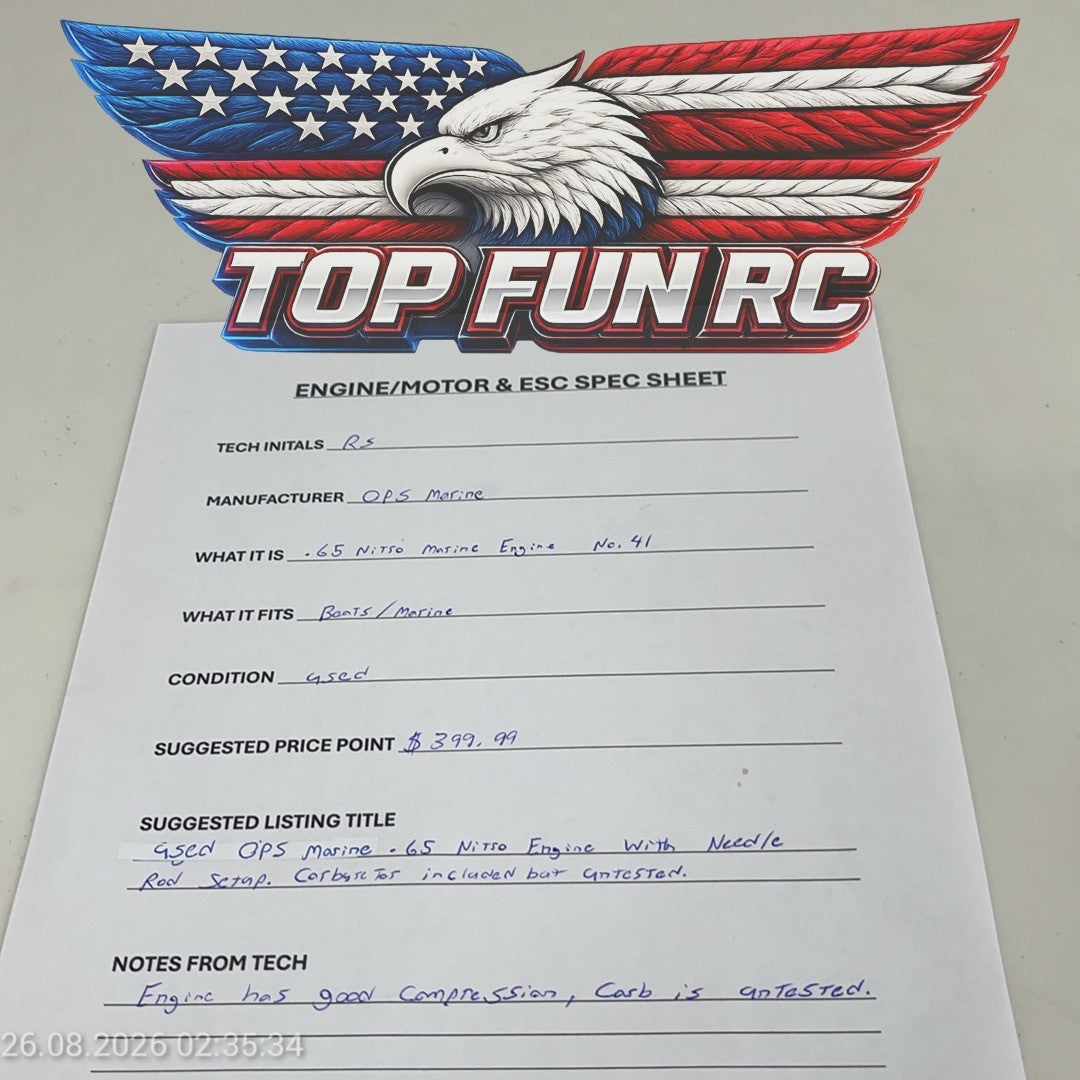 TOP FUN RC
ENGINE/MOTOR & ESC SPEC SHEET
TECH INITALS RS
MANUFACTURER OPS Marine
WHAT IT IS .65 Nitro Marine Engine No. 41
WHAT IT FITS Boats/Marine
CONDITION used
SUGGESTED PRICE POINT $399.99
SUGGESTED LISTING TITLE
Used OPS Marine .65 Nitro Engine With Needle
Rod Setup. Carburetor included but untested.
NOTES FROM TECH
Engine has good compression, Carb is untested.
26.08.2026 02:35:34